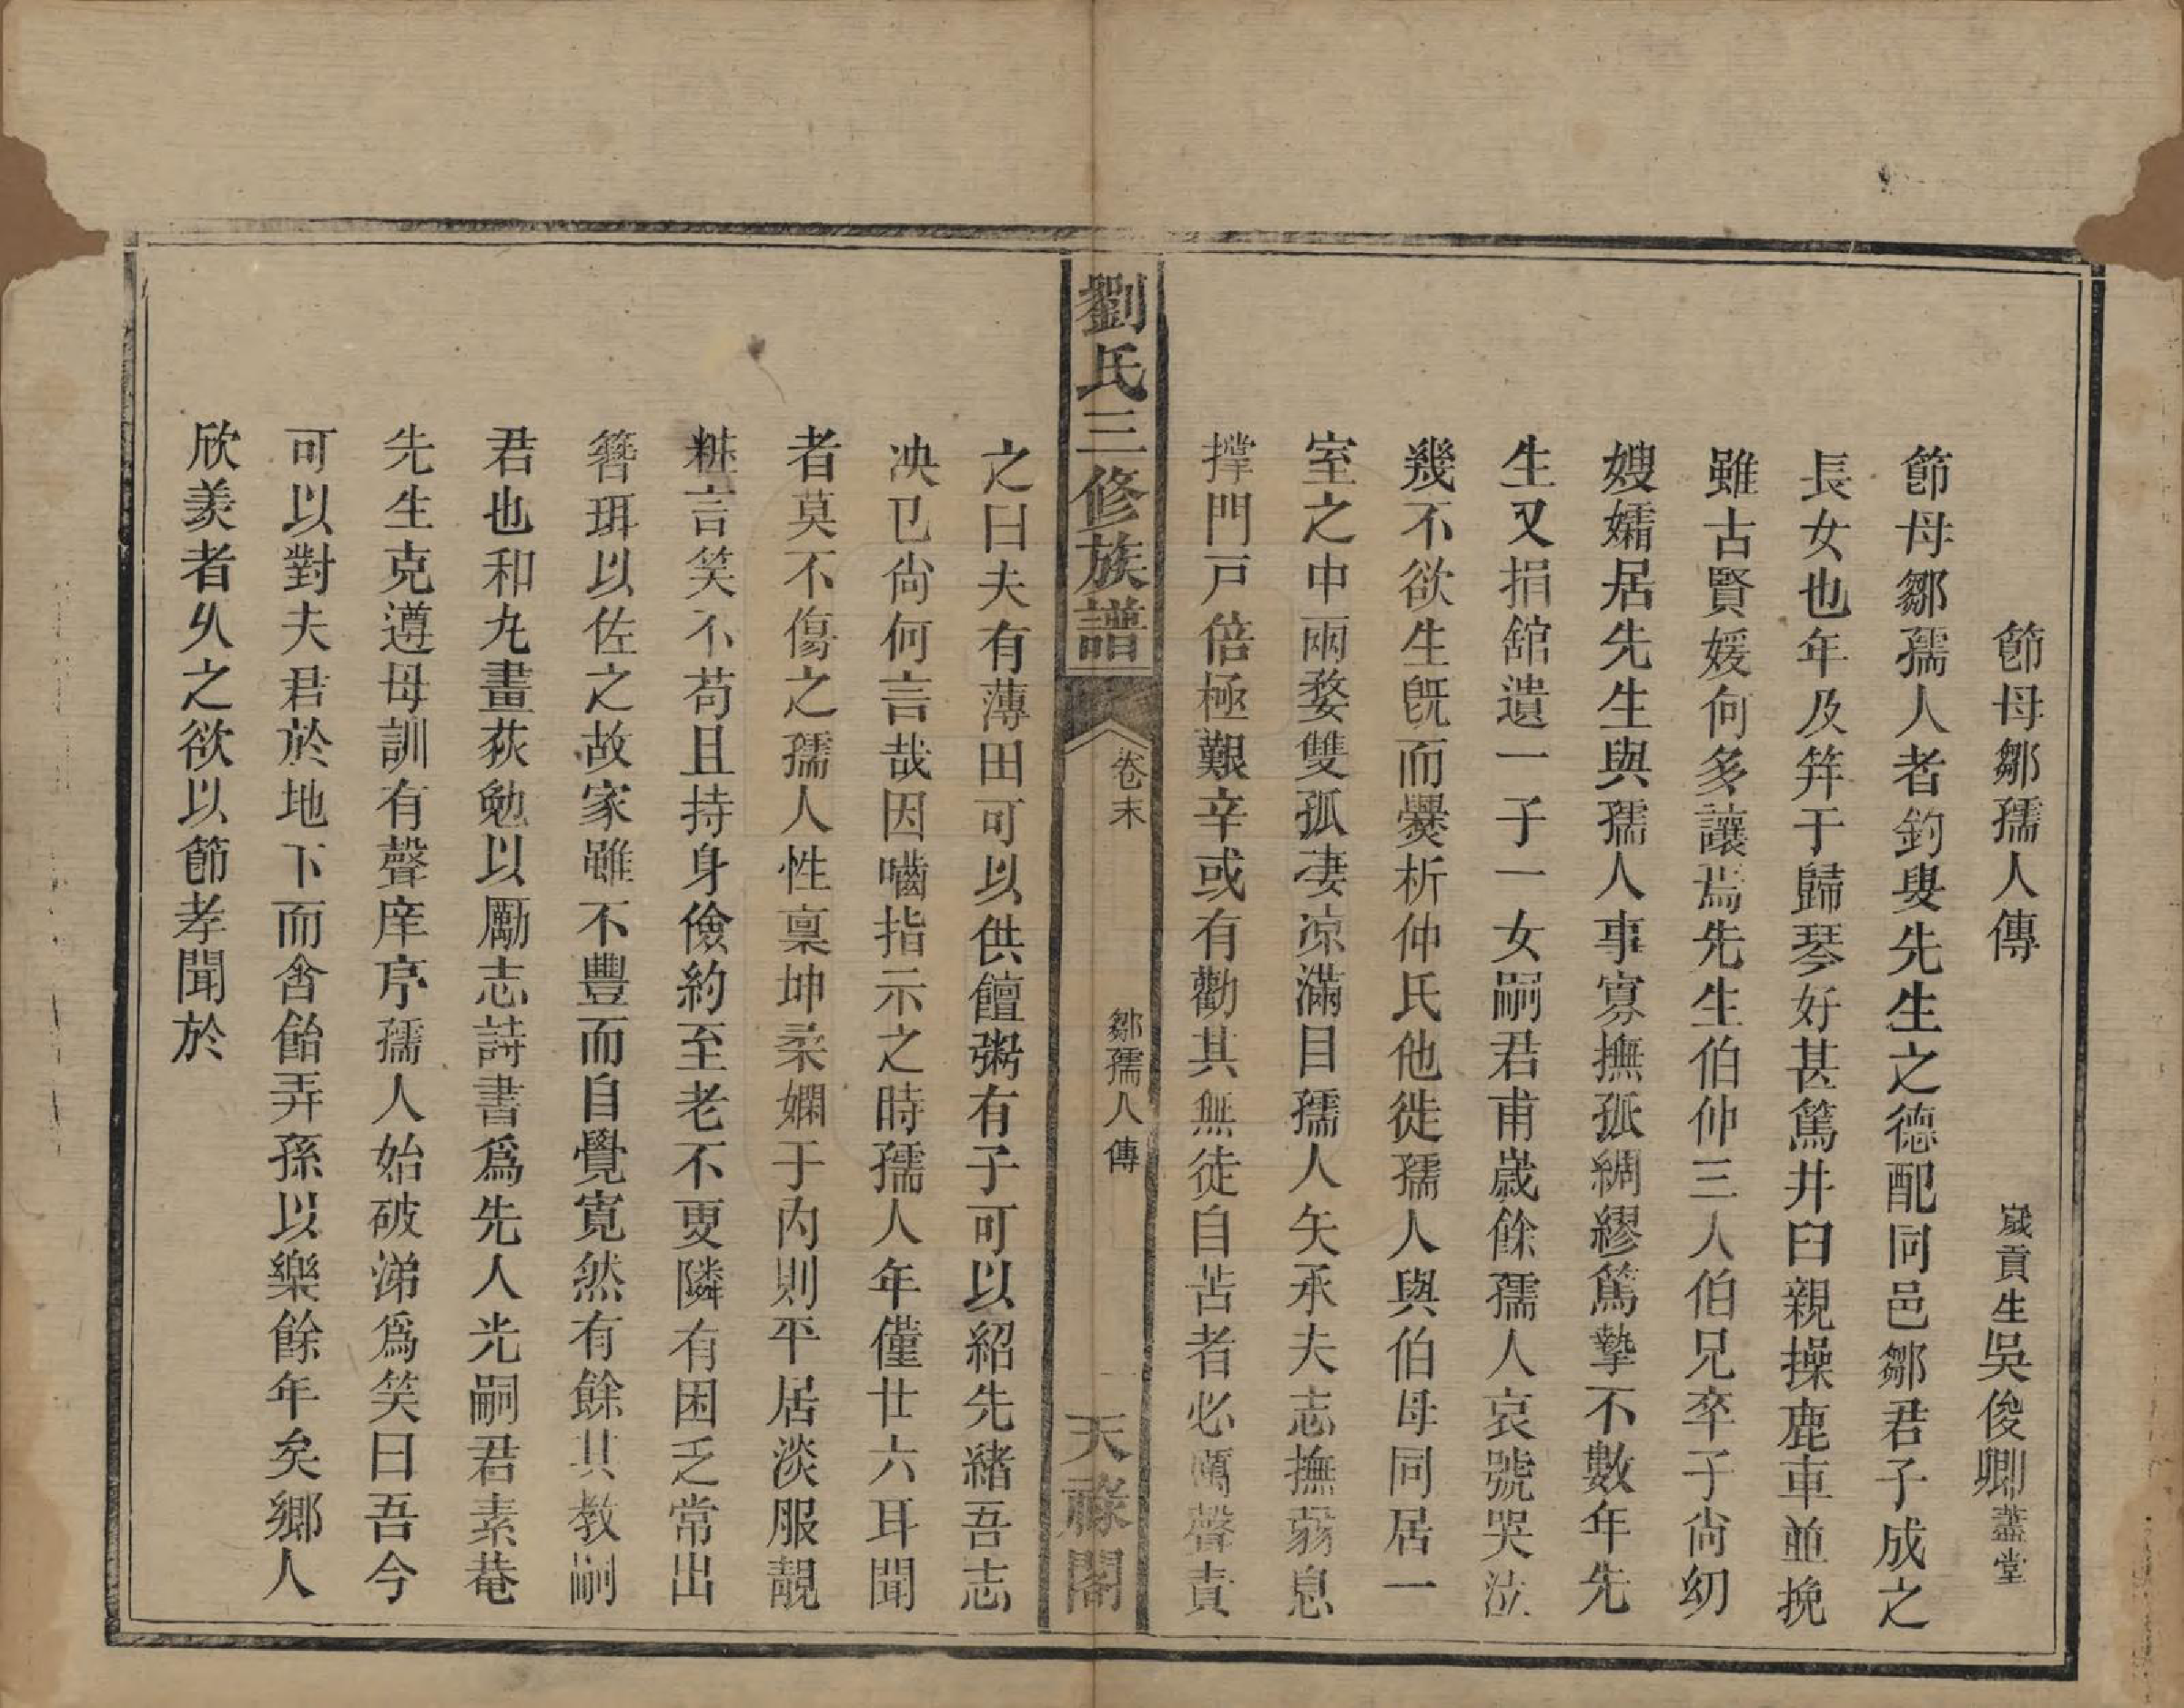 節母鄒孺人傳　歲貢生吳俊卿藎堂
節母鄒孺人者釣叟先生之德配同邑鄒君子成之
長女也年及笄于歸琴好甚篤井臼親操鹿車並挽
雖古賢媛何多讓焉先生伯仲三人伯兄卒子尙幼
嫂孀居先生與孺人事寡撫孤綢繆篤摯不數年先
生又捐舘遺一子一女嗣君甫歲餘孺人哀號哭泣
幾不欲生旣而爨析仲氏他徙孺人與伯母同居一
室之中兩婺雙孤凄凉滿目孺人矢承夫志撫弱息
撑門戸倍極艱辛或有勸其無徒自苦者必厲聲責
劉氏三修族譜
卷末
鄒孺人傳
天祿閣
之曰夫有薄田可以供饘粥有子可以紹先緖吾志
决已尙何言哉因嚙指示之時孺人年僅廿六耳聞
者莫不傷之孺人性稟坤柔嫻于內則平居淡服靚
粧言笑不苟且持身儉約至老不更隣有困乏常出
簪珥以佐之故家雖不豐而自覺寬然有餘其教嗣
君也和丸畫荻勉以勵志詩書爲先人光嗣君素菴
先生克遵母訓有聲庠序孺人始破涕爲笑曰吾今
可以對夫君於地下而含飴弄孫以樂餘年矣鄉人
欣羨者久之欲以節孝聞於